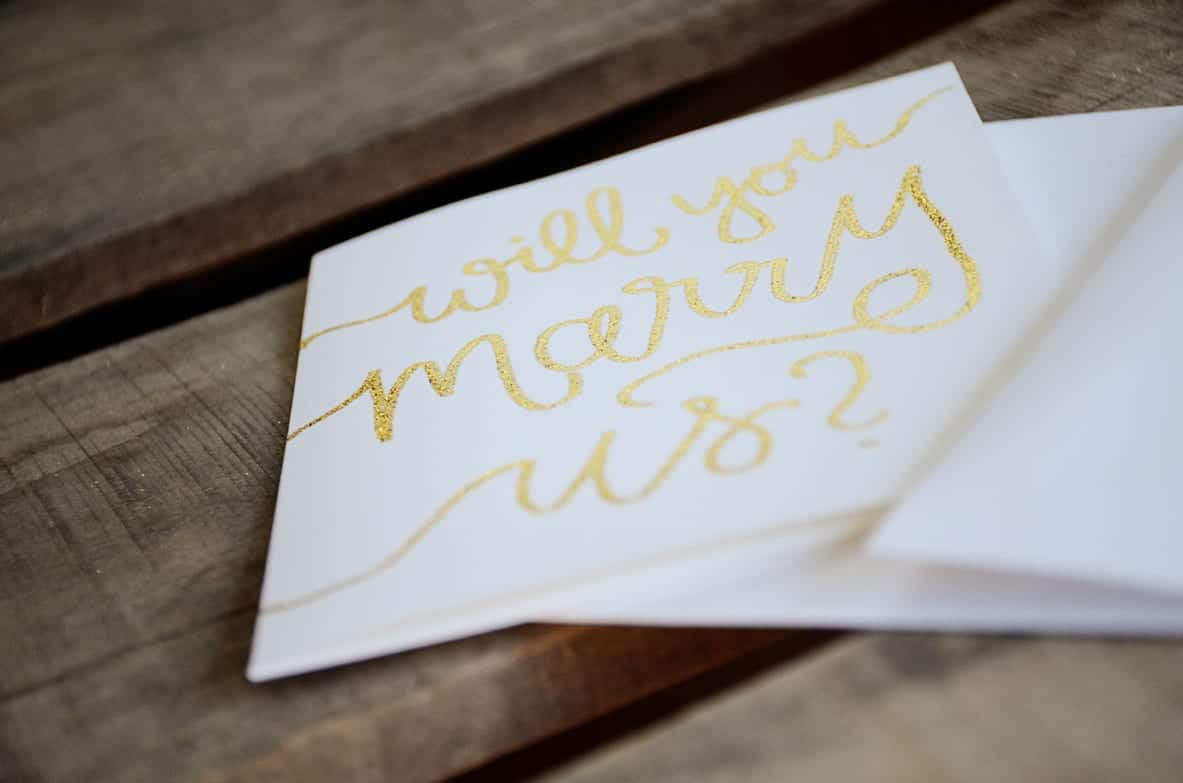 will you
marry
us?